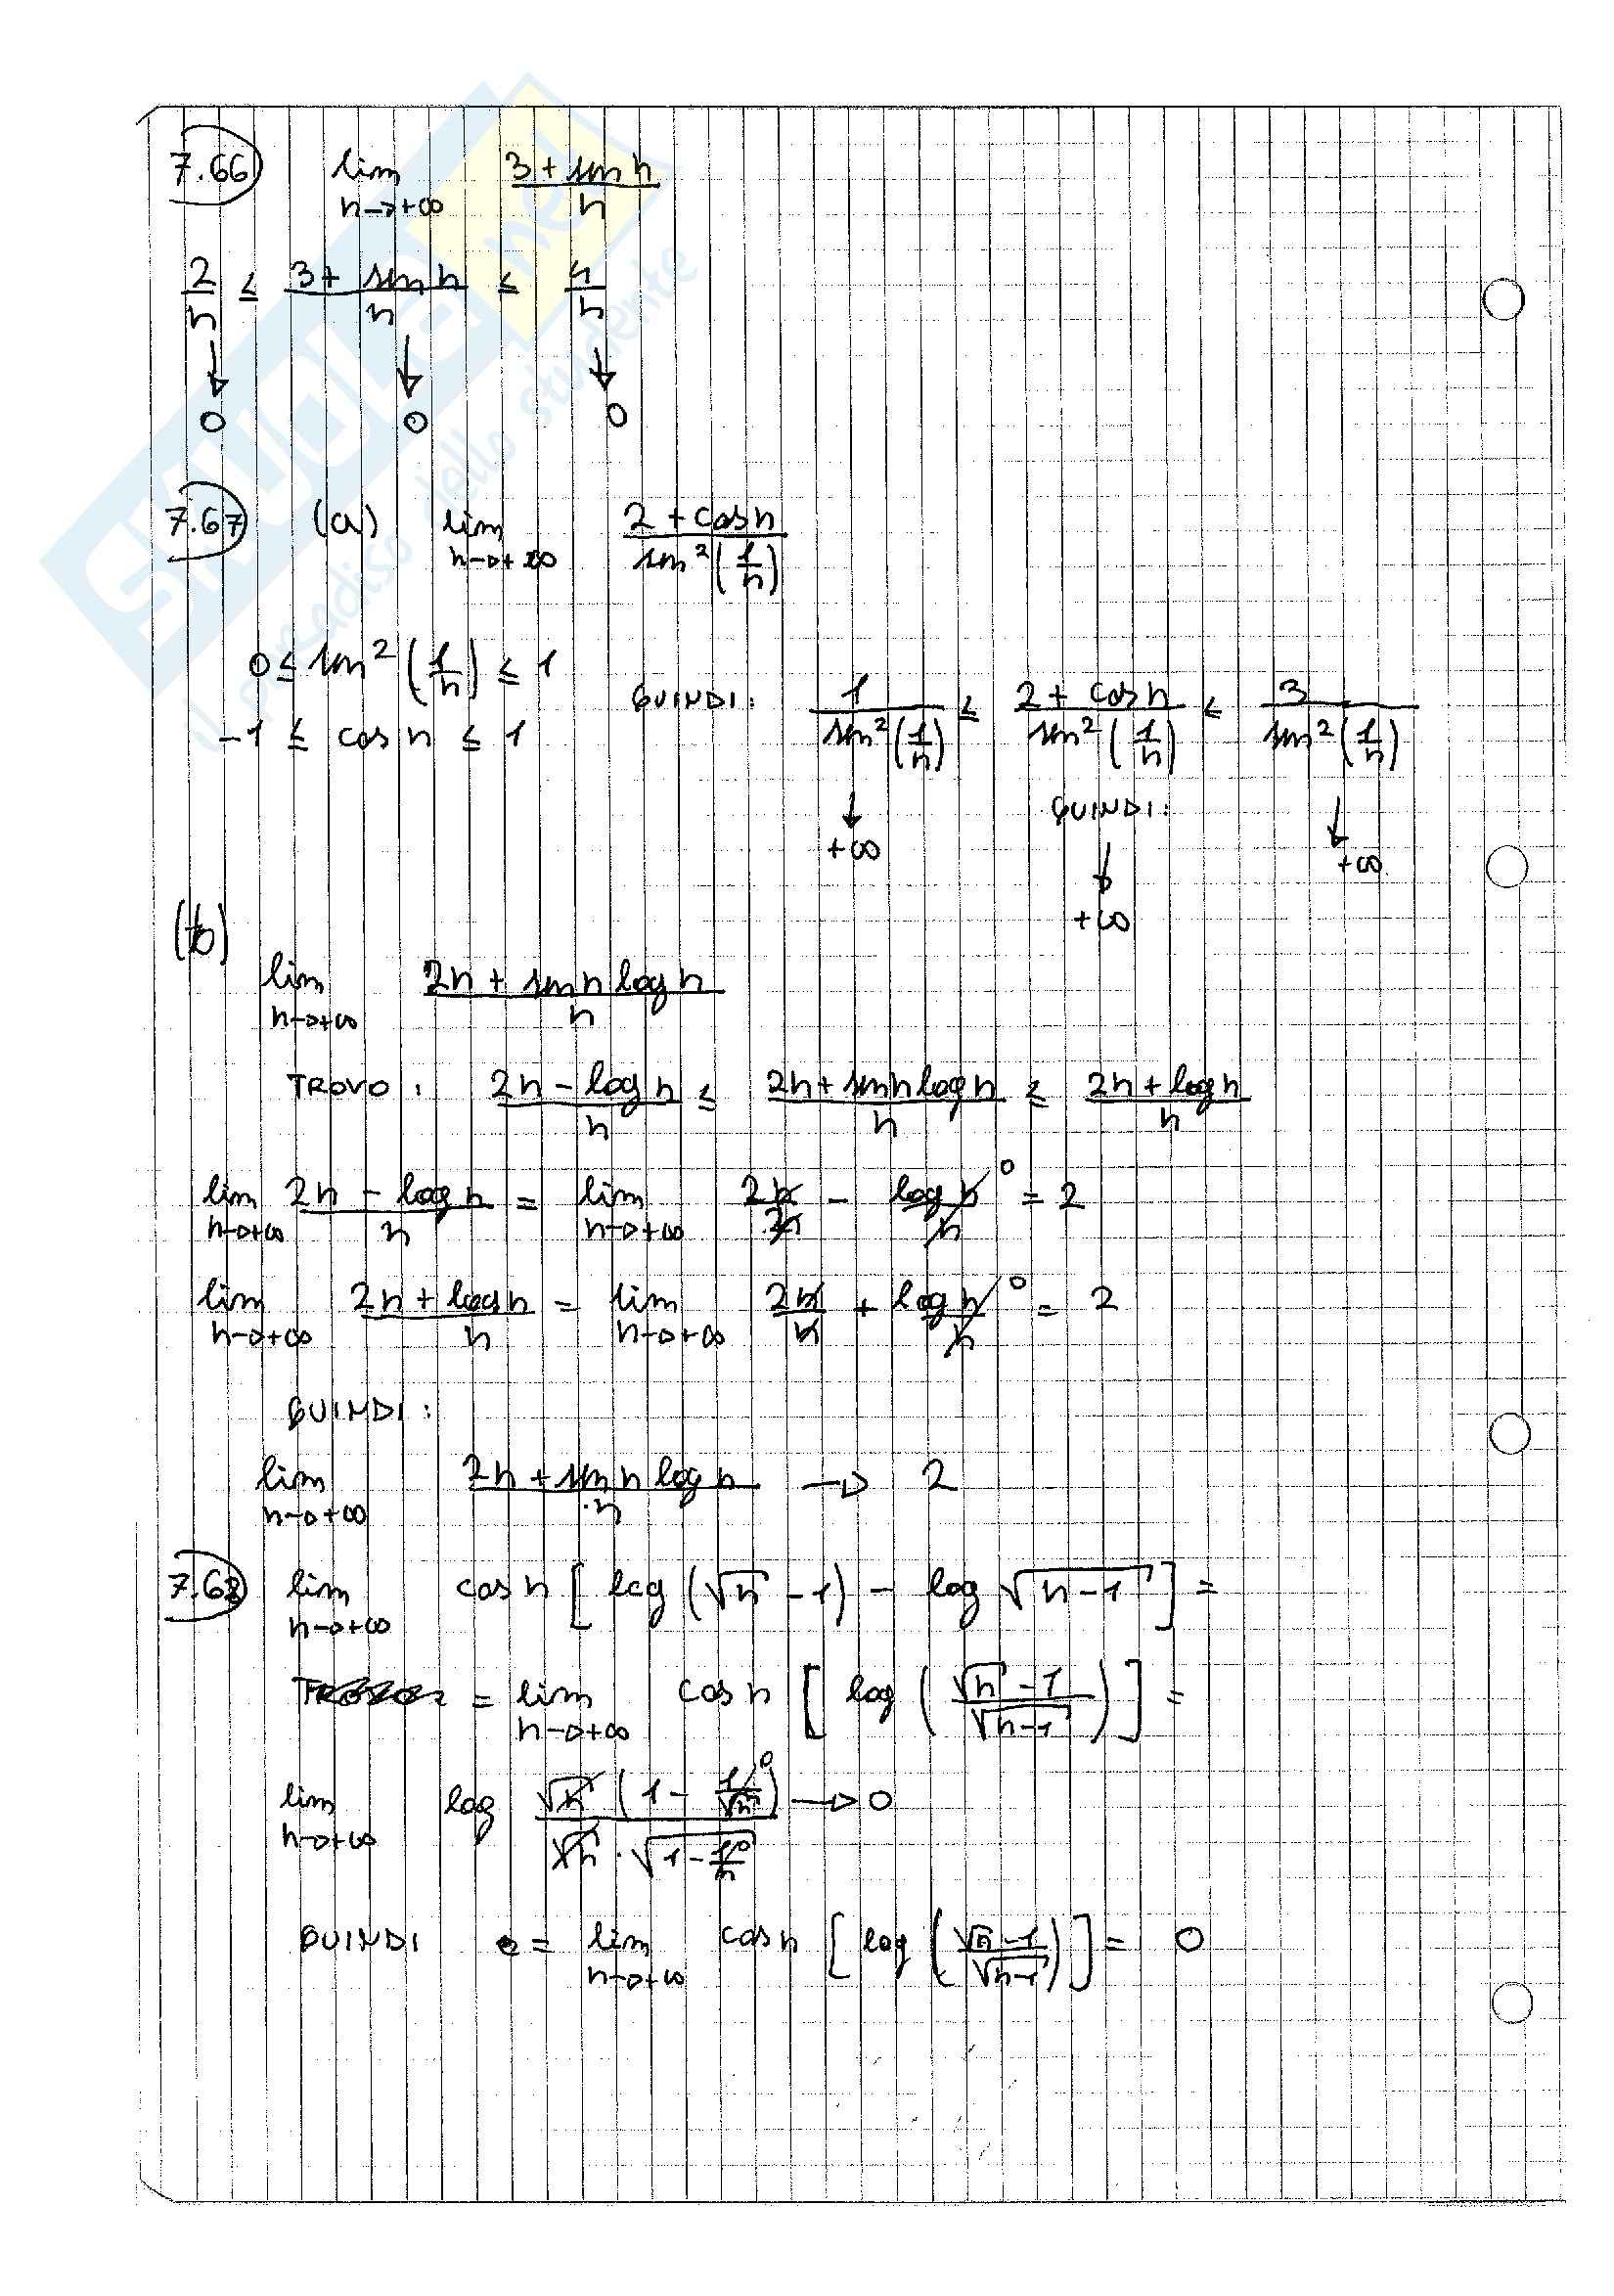 7.66 lim n→+∞ (3 + sin n)/n
2/n ≤ (3 + sin n)/n ≤ 4/n
↓ ↓ ↓
0 0 0
7.67 (a) lim n→+∞ (2 + cos n)/(sin²(1/n))
0 ≤ sin²(1/n) ≤ 1
-1 ≤ cos n ≤ 1
QUINDI: 1/(sin²(1/n)) ≤ (2 + cos n)/(sin²(1/n)) ≤ 3/(sin²(1/n))
QUINDI:
↓ ↓ ↓
+∞ +∞ +∞
(b)
lim n→+∞ (2n + sin n log n)/n
TROVO: (2n - log n)/n ≤ (2n + sin n log n)/n ≤ (2n + log n)/n
lim n→+∞ (2n - log n)/n = lim n→+∞ 2n/n - log n/n ⁰ = 2
lim n→+∞ (2n + log n)/n = lim n→+∞ 2n/n + log n/n ⁰ = 2
QUINDI:
lim n→+∞ (2n + sin n log n)/n → 2
7.68 lim n→+∞ cos n [log (√n - 1) - log √(n-1)] =
= lim n→+∞ cos n [log ((√n - 1)/√(n-1))] =
lim n→+∞ log (√n (1 - 1/√n ⁰))/(√n · √(1 - 1/n ⁰)) → 0
QUINDI = lim n→+∞ cos n [log ((√n - 1)/√(n-1))] = 0
skuola.net
il paradiso dello studente